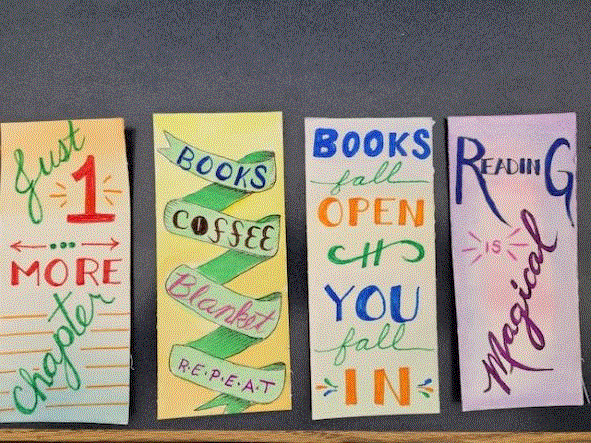 Just
1
MORE
chapter
BOOKS
COFFEE
Blanket
R·E·P·E·A·T
BOOKS
fall
OPEN
YOU
fall
IN
READING
IS
Magical